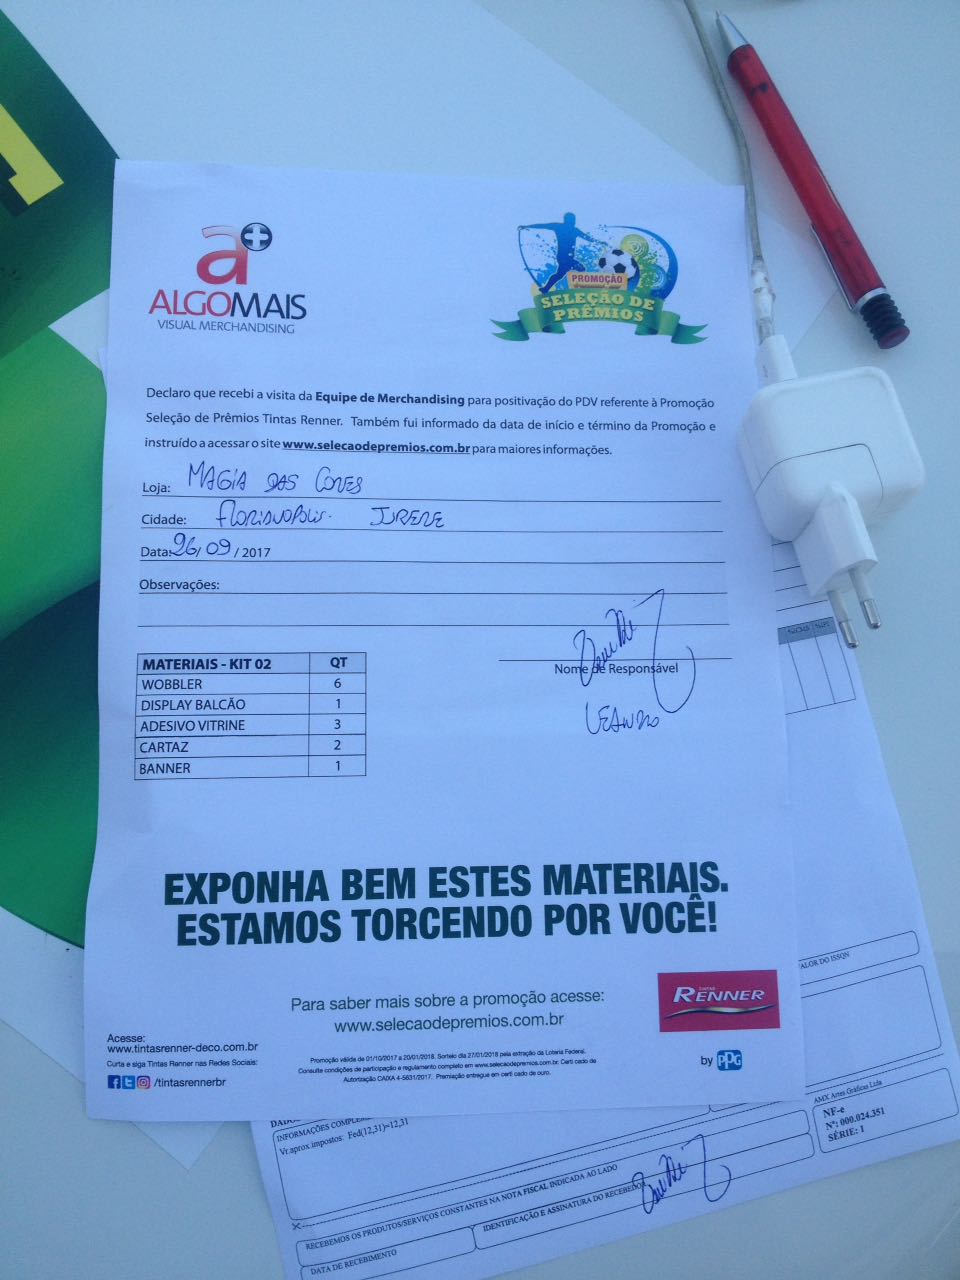 a+
ALGOMAIS
VISUAL MERCHANDISING
PROMOÇÃO
SELEÇÃO DE
PRÊMIOS
Declaro que recebi a visita da Equipe de Merchandising para positivação do PDV referente à Promoção
Seleção de Prêmios Tintas Renner. Também fui informado da data de início e término da Promoção e
instruído a acessar o site www.selecaodepremios.com.br para maiores informações.
Loja: MAGIA DAS CORES
Cidade: FLORIANOPOLIS- JURERE
Data: 26/09/2017
Observações:
Nome de Responsável
LEANDRO
MATERIAIS - KIT 02 QT
WOBBLER 6
DISPLAY BALCÃO 1
ADESIVO VITRINE 3
CARTAZ 2
BANNER 1
EXPONHA BEM ESTES MATERIAIS.
ESTAMOS TORCENDO POR VOCÊ!
Para saber mais sobre a promoção acesse:
www.selecaodepremios.com.br
TINTAS
RENNER
by PPG
Acesse:
www.tintasrenner-deco.com.br
Curta e siga Tintas Renner nas Redes Sociais:
/tintasrennerbr
Promoção válida de 01/10/2017 a 20/01/2018. Sorteio dia 27/01/2018 pela extração da Loteria Federal.
Consulte condições de participação e regulamento completo em www.selecaodepremios.com.br. Certi cado de
Autorização CAIXA 4-5631/2017. Premiação entregue em certi cado de ouro.
VALOR DO ISSQN
INFORMAÇÕES COMPLE
Vr.aprox.impostos: Fed(12,31)=12,31
AMX Artes Gráficas Ltda
NF-e
Nº: 000.024.351
SÉRIE: 1
RECEBEMOS OS PRODUTOS/SERVIÇOS CONSTANTES NA NOTA FISCAL INDICADA AO LADO
DATA DE RECEBIMENTO
IDENTIFICAÇÃO E ASSINATURA DO RECEBEDOR